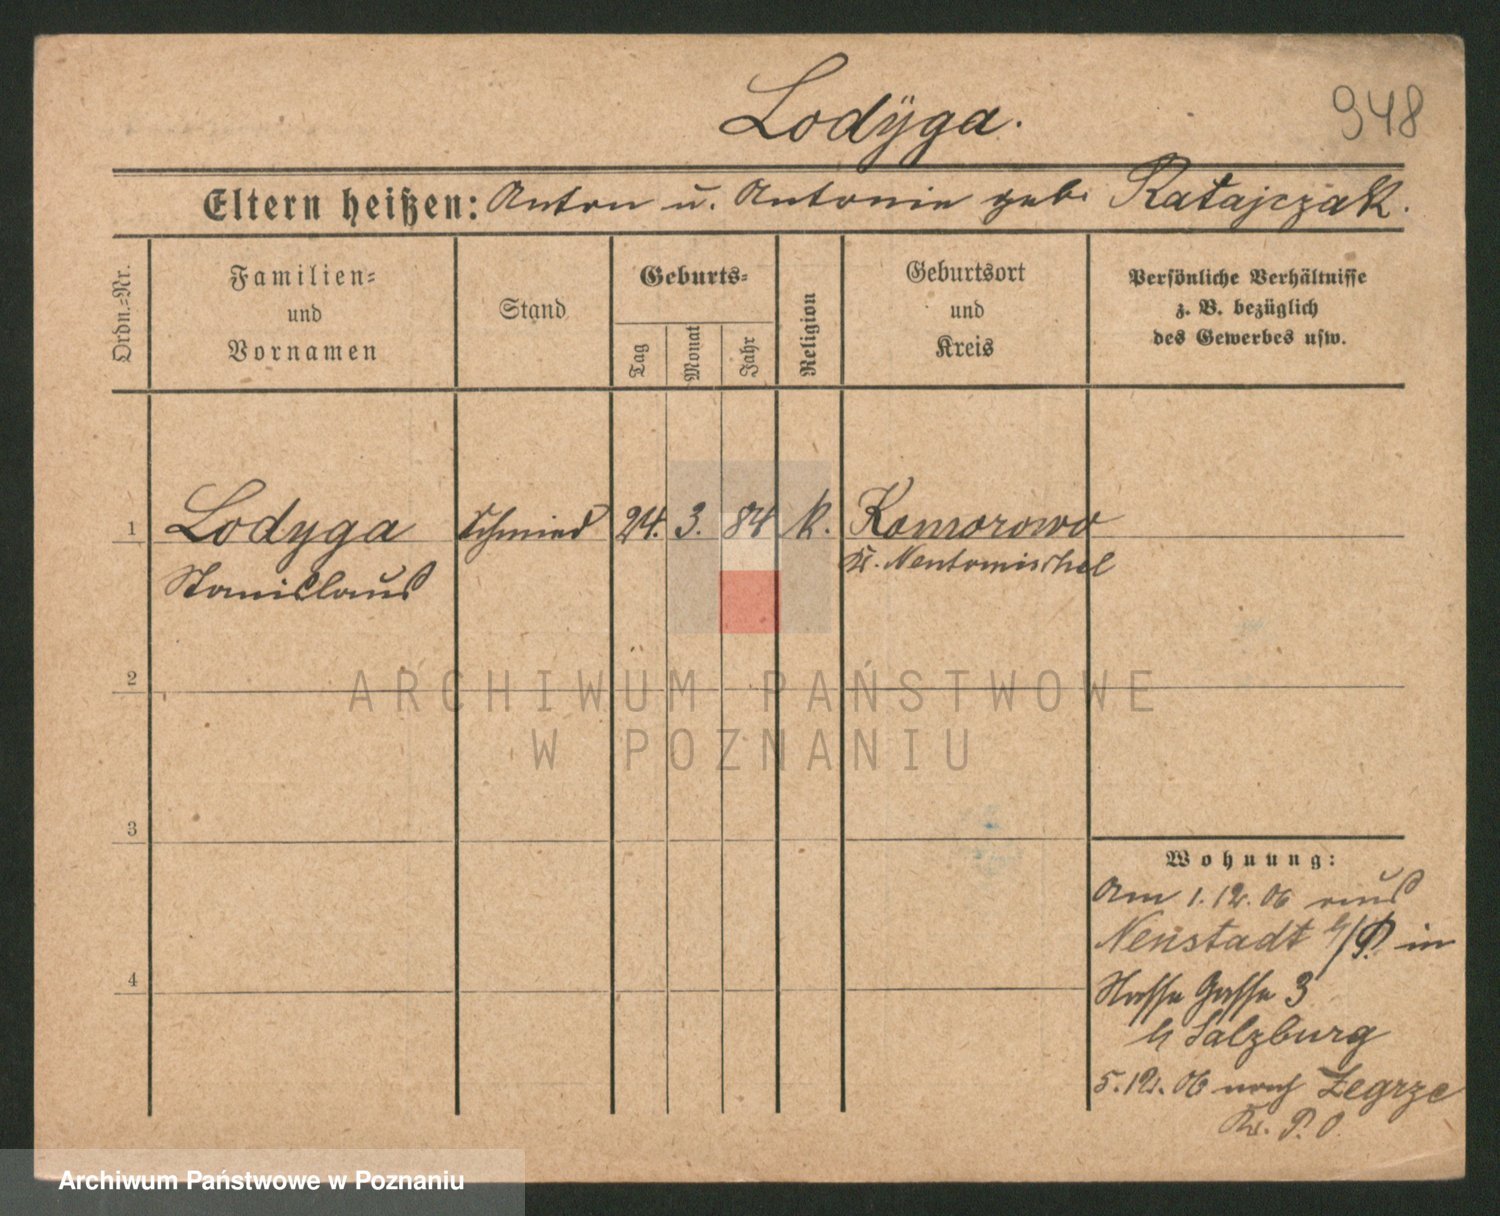 Lodÿga.
948
Eltern heißen: Anton u. Antonie geb. Ratajczak.
Ordn.-Nr.
Familien-
und
Vornamen
Stand
Geburts-
Tag
Monat
Jahr
Religion
Geburtsort
und
Kreis
Persönliche Verhältnisse
z. B. bezüglich
des Gewerbes usw.
1 Lodyga Schmied 24. 3. 84 k. Komorowo
Stanislaus Kr. Neutomischel
2
ARCHIWUM PAŃSTWOWE
W POZNANIU
3
4
Wohnung:
Am 1.12.06 aus
Neustadt b/P. in
Gasse 3
b Salzburg
5.12.06 nach Zegrze
Kr. P. O.
Archiwum Państwowe w Poznaniu